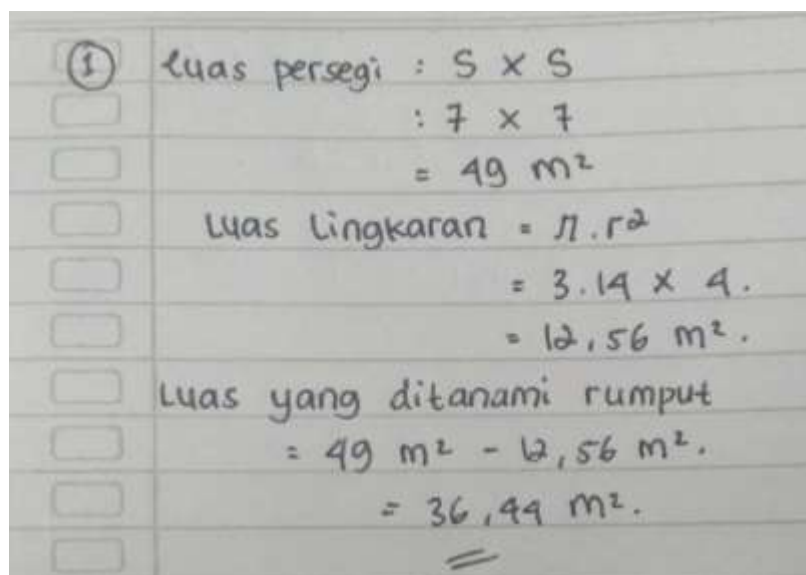 ① Luas persegi : S × S
: 7 × 7
= 49 m²
Luas lingkaran = π.r²
= 3.14 × 4.
= 12,56 m².
Luas yang ditanami rumput
= 49 m² - 12,56 m².
= 36,44 m².